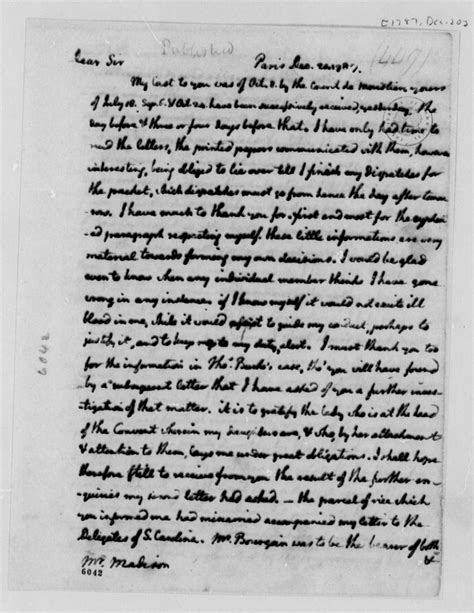 [1787, Dec. 20]
Published
(449)
Dear Sir Paris Dec. 20. 1787.
My last to you was of Oct. 8. by the Count de Moustier. yours
of July 18. Sep. 6. & Oct. 24. have been successively received, yesterday, the
day before & three or four days before that. I have only had time to
read the letters, the printed papers communicated with them, however
interesting, being obliged to lie over till I finish my dispatches for
the packet, which dispatches must go from hence the day after tomor-
row. I have much to thank you for. first and most for the cyphered
paragraph respecting myself. these little informations are very
material towards forming my own decisions. I would be glad
even to know when any individual member thinks I have gone
wrong in any instance. if I know myself it would not excite ill
blood in me, while it would assist to guide my conduct, perhaps to
justify it, and to keep me to my duty, alert. I must thank you too
for the information in Thos. Burke's case, tho' you will have found
by a subsequent letter that I have asked of you a further inves-
tigation of that matter. it is to gratify the lady who is at the head
of the Convent wherein my daughters are, & who, by her attachment
& attention to them, lays me under great obligations. I shall hope
therefore still to receive from you the result of the further en-
quiries my second letter had asked. — the parcel of rice which
you informed me had miscarried accompanied my letter to the
Delegates of S. Carolina. Mr. Bourgoin was to be the bearer of both
&
Mr. Madison
6042
6042